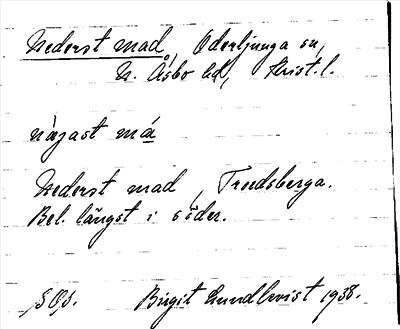 Nederst mad, Oderljunga sn,
N. Åsbo hd, Krist. l.
nęʒast må
Nederst mad, Troedsberga.
Bel. längst i söder.
Birgit Lundkvist 1938.